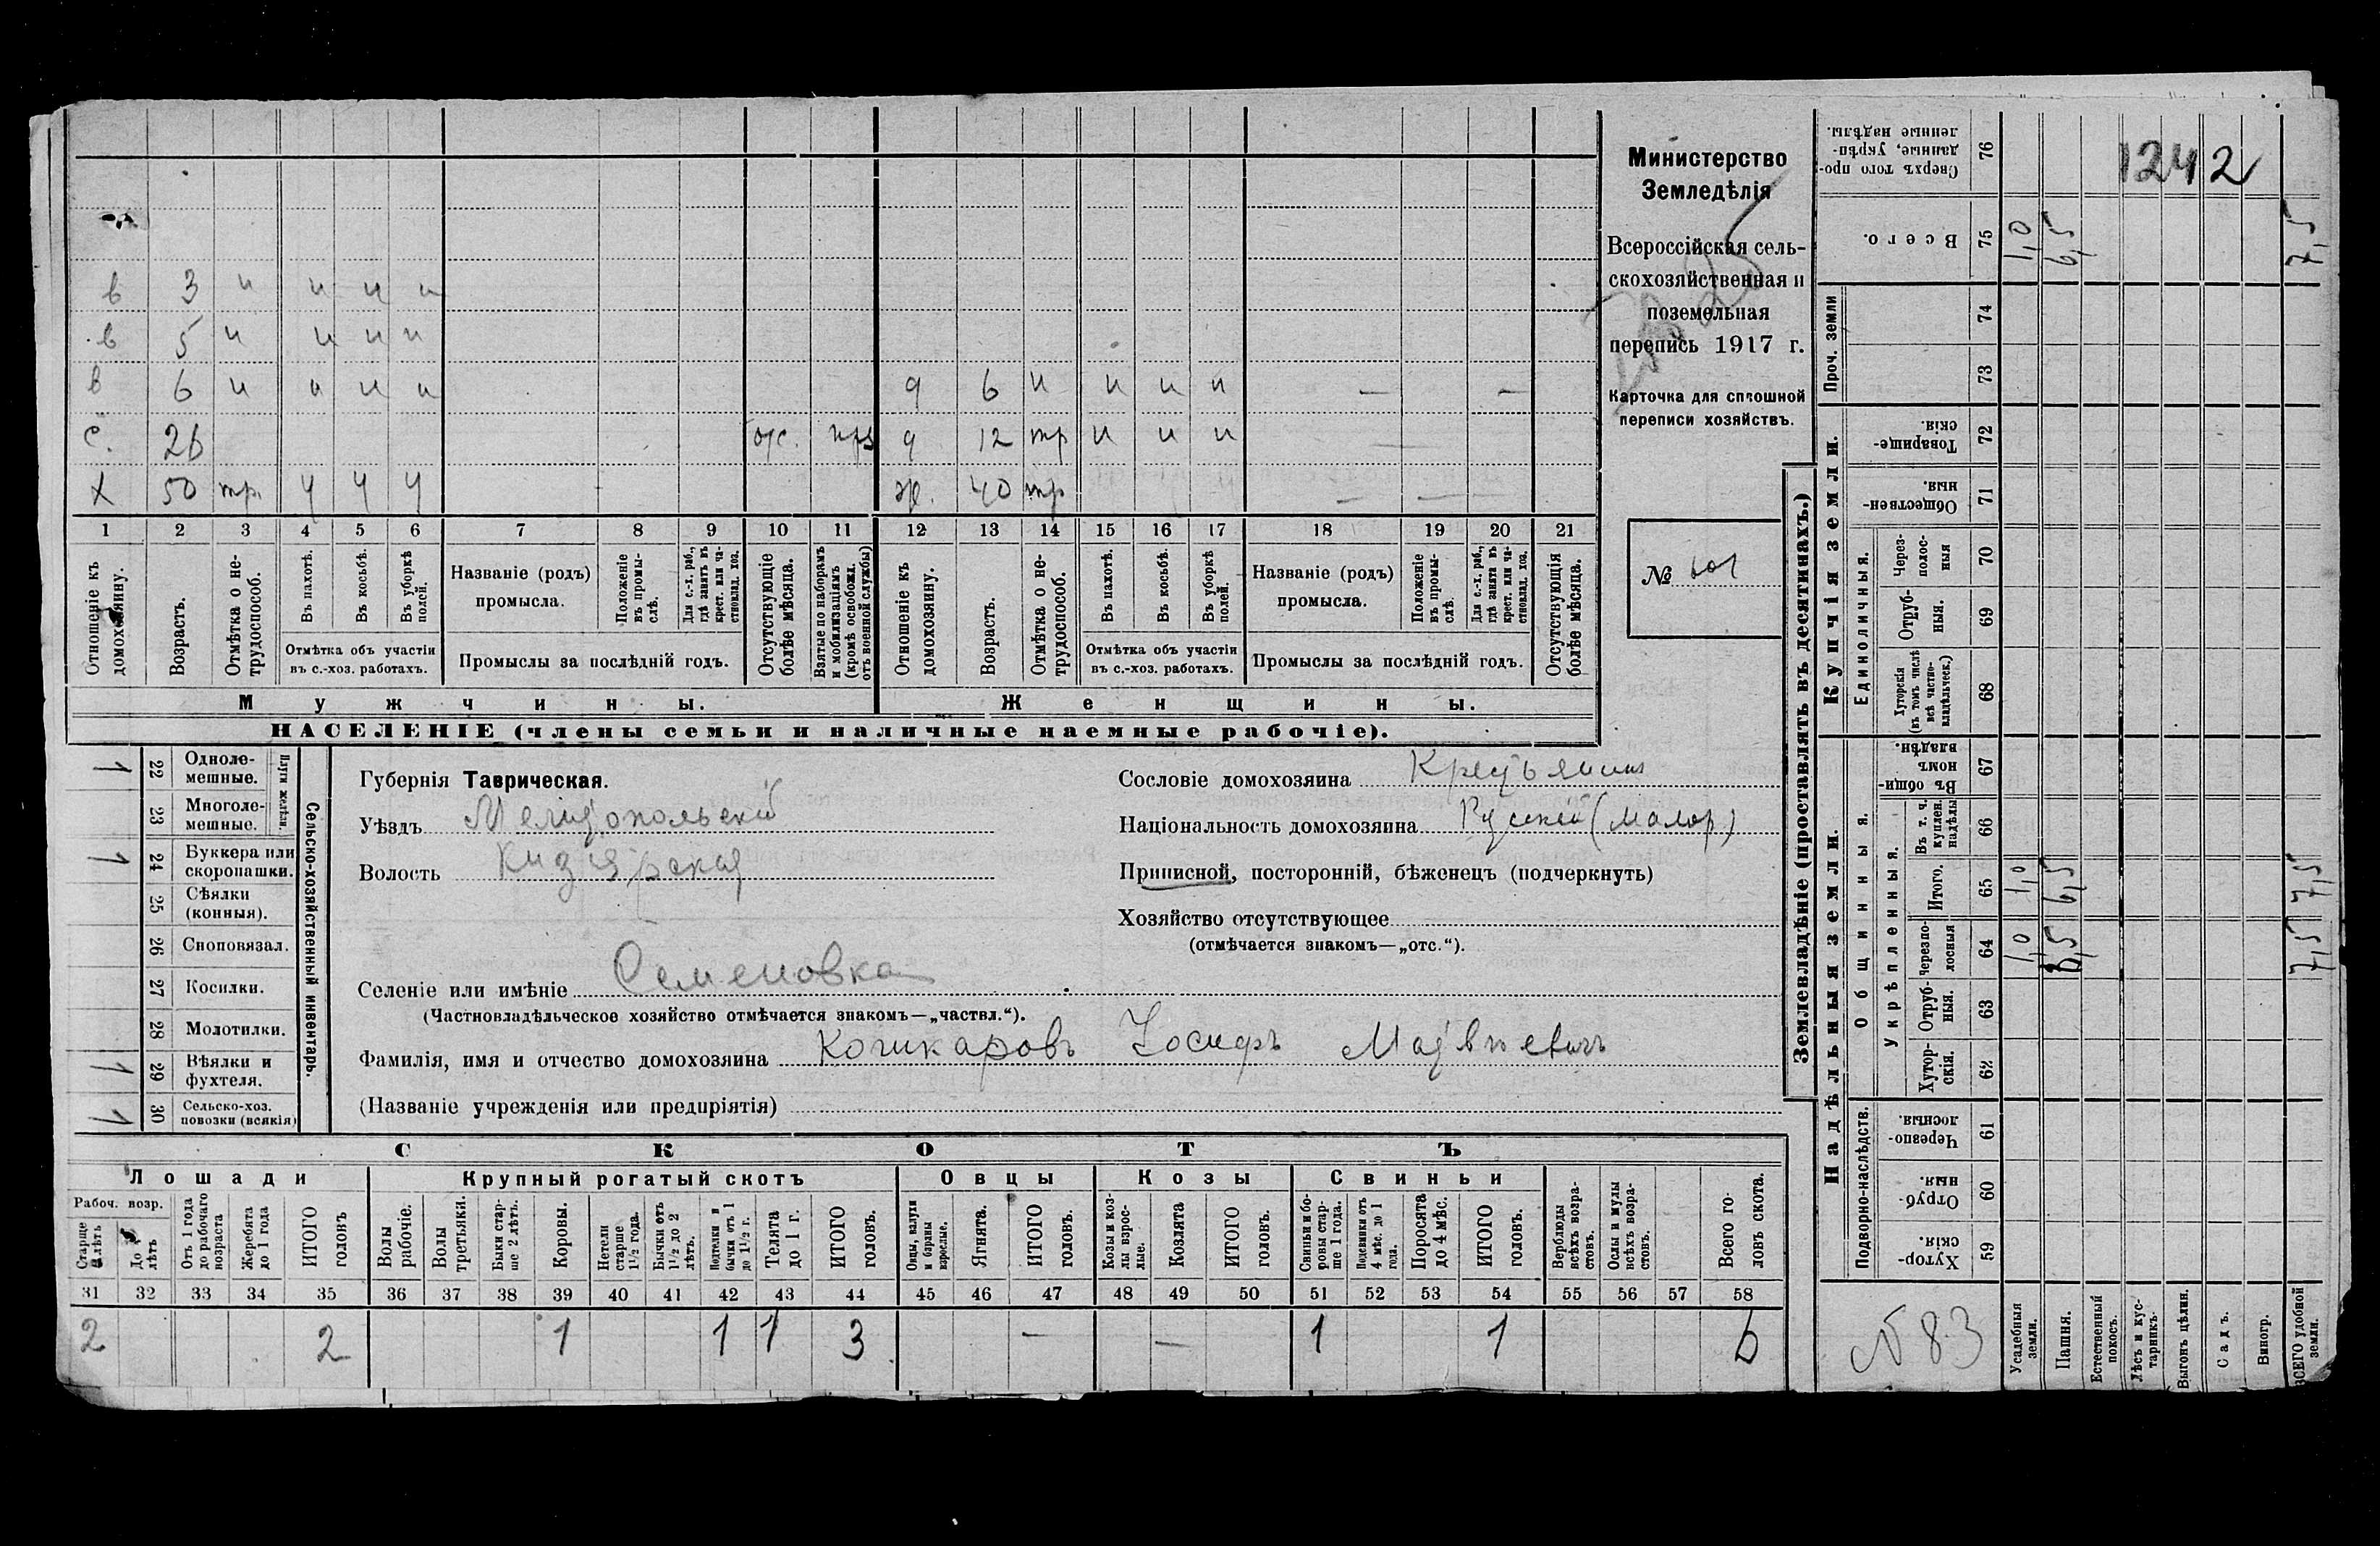 в 3 н н н н
в 5 н н н н
в 6 н н н н д 6 н н н н — —
с. 26 отс. д 12 тр н н н
х 50 тр. у у у ж. 40 тр — —
1 2 3 4 5 6 7 8 9 10 11 12 13 14 15 16 17 18 19 20 21
Отношеніе къ домохозяину.
Возрастъ.
Отмѣтка о нетрудоспособ.
Въ пахотѣ.
Въ косьбѣ.
Въ уборкѣ полей.
Отмѣтка объ участіи
въ с.-хоз. работахъ.
Названіе (родъ)
промысла.
Положеніе въ промы-слѣ.
Для с.-х. раб., гдѣ занятъ въ крест. или ча-стновлад. хоз.
Промыслы за послѣдній годъ.
Отсутствующіе болѣе мѣсяца.
Взятые по наборамъ и мобилизаціямъ (кромѣ освобожд. отъ военной службы)
Отношеніе къ домохозяину.
Возрастъ.
Отмѣтка о не-трудоспособ.
Въ пахотѣ.
Въ косьбѣ.
Въ уборкѣ полей.
Отмѣтка объ участіи
въ с.-хоз. работахъ.
Названіе (родъ)
промысла.
Положеніе въ промы-слѣ.
Для с.-х. раб., гдѣ занята въ крест. или ча-стновлад. хоз.
Промыслы за послѣдній годъ.
Отсутствующія болѣе мѣсяца.
Мужчины. Женщины.
НАСЕЛЕНІЕ (члены семьи и наличные наемные рабочіе).
Министерство
Земледѣлія
Всероссійская сель-
скохозяйственная и
поземельная
перепись 1917 г.
Карточка для сплошной
переписи хозяйствъ.
№
1 22 Одноле-мешные.
23 Многоле-мешные.
Плуги желѣзн.
1 24 Буккера или скоропашки.
25 Сѣялки (конныя).
26 Сноповязал.
27 Косилки.
28 Молотилки.
1 29 Вѣялки и фухтеля.
1 30 Сельско-хоз. повозки (всякія)
Сельско-хозяйственный инвентарь.
Губернія Таврическая.
Уѣздъ Мелитопольскій
Волость Кизіярская
Сословіе домохозяина Крестьянинъ
Національность домохозяина Русскій (малор)
Приписной, посторонній, бѣженецъ (подчеркнуть)
Хозяйство отсутствующее
(отмѣчается знакомъ—„отс.“).
Селеніе или имѣніе Семеновка
(Частновладѣльческое хозяйство отмѣчается знакомъ—„частвл.“).
Фамилія, имя и отчество домохозяина Кочкаровъ Іосифъ Матвѣевичъ
(Названіе учрежденія или предпріятія)
СКОТЪ
Лошади Крупный рогатый скотъ Овцы Козы Свиньи
Рабоч. возр.
До лѣтъ
Отъ 1 года до рабочаго возраста
Жеребята до 1 года
ИТОГО головъ
Волы рабочіе.
Волы третьяки.
Быки стар-ше 2 лѣтъ.
Коровы.
Нетели старше 1½ года.
Бычки отъ 1½ до 2 лѣтъ.
Подтелки и бычки отъ 1 до 1½ г.
Телята до 1 г.
ИТОГО головъ.
Овцы, валухи и бараны взрослые.
Ягнята.
ИТОГО головъ.
Козы и коз-лы взрос-лые.
Козлята
ИТОГО головъ.
Свиньи и бо-ровы стар-ше 1 года.
Подсвинки отъ 4 мѣс. до 1 года.
Поросята до 4 мѣс.
ИТОГО головъ.
Верблюды всѣхъ возра-стовъ.
Ослы и мулы всѣхъ возра-стовъ.
Всего го-ловъ скота.
31 32 33 34 35 36 37 38 39 40 41 42 43 44 45 46 47 48 49 50 51 52 53 54 55 56 57 58
2 2 1 1 1 3 — — 1 1 6
Землевладѣніе (проставлять въ десятинахъ.)
Купчія земли.
Надѣльныя земли.
Сверхъ того про-данные, укрѣп-ленные надѣлы. 76
1242
Всего. 75 1,0 6,5 7,5
Проч. земли 74
73
Товарище-скія. 72
Обществен-ныя. 71
Единоличныя.
Через-полос-ныя 70
Отруб-ныя. 69
Хуторскія (въ томъ числѣ всѣ частно-владѣльческ.) 68
Общинныя.
Въ общи-номъ владѣн. 67
Укрѣпленныя.
Въ т. ч. куплен. надѣлы 66
Итого. 65 1,0 6,5 7,5
Черезпо-лосныя 64 1,0 6,5 7,5
Отруб-ныя. 63
Хутор-скія. 62
Подворно-наслѣдств.
Черезпо-лосныя. 61
Отруб-ныя. 60
Хутор-скія. 59
N 83
Усадебныя земли.
Пашня.
Естественный покосъ.
Лѣсъ и кус-тарникъ.
Выгонъ цѣлин.
Садъ.
Виногр.
ВСЕГО удобной земли.